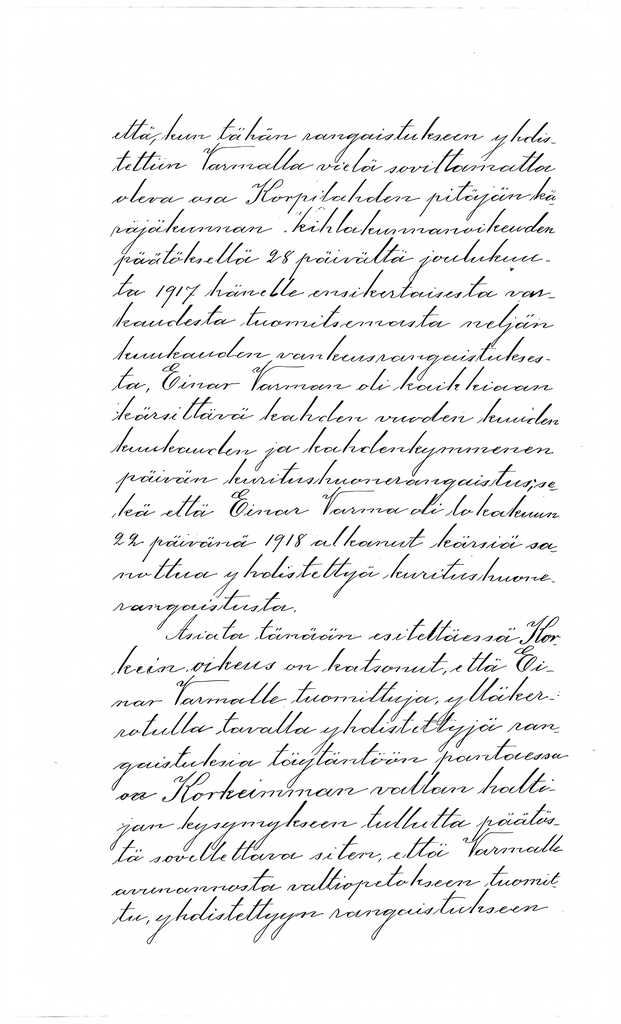 että, kun tähän rangaistukseen yhdis-
tettiin Varmalla vielä sovittamatta
oleva osa Korpilahden pitäjän kä
räjäkunnan kihlakunnanoikeuden
päätöksellä 28 päivältä joulukuu-
ta 1917 hänelle ensikertaisesta var-
kaudesta tuomitsemasta neljän
kuukauden vankeusrangaistukses-
ta, Einar Varman oli kaikkiaan
kärsittävä kahden vuoden kuuden
kuukauden ja kahdenkymmenen
päivän kuritushuonerangaistus; se-
kä että Einar Varma oli lokakuun
22 päivänä 1918 alkanut kärsiä sa-
nottua yhdistettyä kuritushuone-
rangaistusta.
Asiata tänään esiteltäessä Kor-
kein oikeus on katsonut, että Ei-
nar Varmalle tuomittuja, ylläker-
rotulla tavalla yhdistettyjä ran-
gaistuksia täytäntöön pantaessa
on Korkeimman vallan halti-
jan kysymykseen tullutta päätös-
tä sovellettava siten, että Varmalle
avunannosta valtiopetokseen tuomit-
tu, yhdistettyyn rangaistukseen